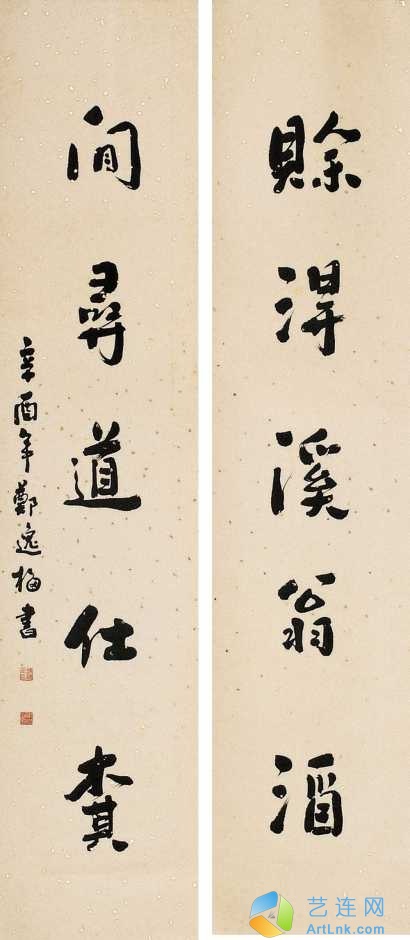 賒得溪翁酒
閒尋道仕棊
辛酉年鄭逸梅書
艺连网
ArtLnk.com